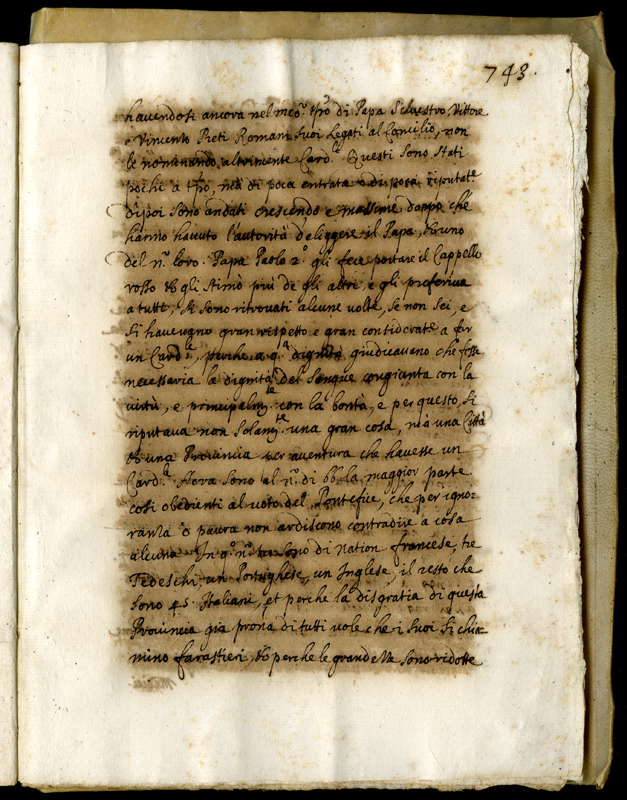 743.
havendosi ancora nel med.º tpo di Papa Silvestro, Vittore
e Vincentio Preti Romani suoi Legati al Concilio, non
le nominando altrimente Card.li Questi sono stati
pochi a tpo, mà di poca entrata e di poca riputat.e
dipoi sono andati crescendo e massime doppo che
hanno havuto l'autorità d'eliggere il Papa, &
del n.º loro. Papa Paolo 2.º gli fece portare il Cappello
rosso & gli stimò più de gli altri, e gli preferiva
a tutti, si sono ritrovati alcune volte, se non sei, e
si haveva gran rispetto e gran considerat.e a far
un Card.le, perche a q.a dignità giudicavano che fosse
necessaria la dignità del sangue congiunta con la
virtù, e principalm.te con la bontà, e per questo, si
riputava non solam.te una gran cosa, mà una Città
& una Provincia per aventura che havesse un
Card.le Hora sono al n.º di 66. la maggior parte
così obedienti al voto del Pontefice, che per igno=
ranza o paura non ardiscono contradire a cosa
alcuna. In q.º n.º tre sono di nation francese, tre
Tedeschi un Portughese, un Inglese, il resto che
sono 45. Italiani, et perche la disgratia di questa
Provincia già prona di tutti vole che i suoi si chia=
mino farastieri, & perche le grandezze sono ridotte